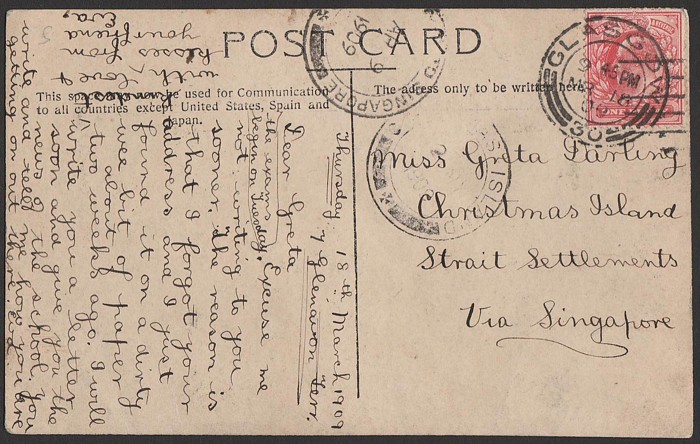 POST CARD
This space may be used for Communication
to all countries except United States, Spain and
Japan.
The adress only to be written here
GLASGOW
45 PM
MR 18
SINGAPORE
AP 9
1909
ONE
Miss Greta Darling
Christmas Island
Strait Settlements
Via Singapore
Thursday 18th March 1909
7 Glenavon Terr.
Dear Greta
the exams begin on Tuesday.
Excuse me
not writing to you
sooner, the reason is
that I forgot your
address and I just
found it on a dirty
wee bit of paper
two weeks ago. I will
write you a letter
soon and give you the
news of the school. you
write and tell me how you are
getting on out there.
with love &
kisses from
your friend
Eva